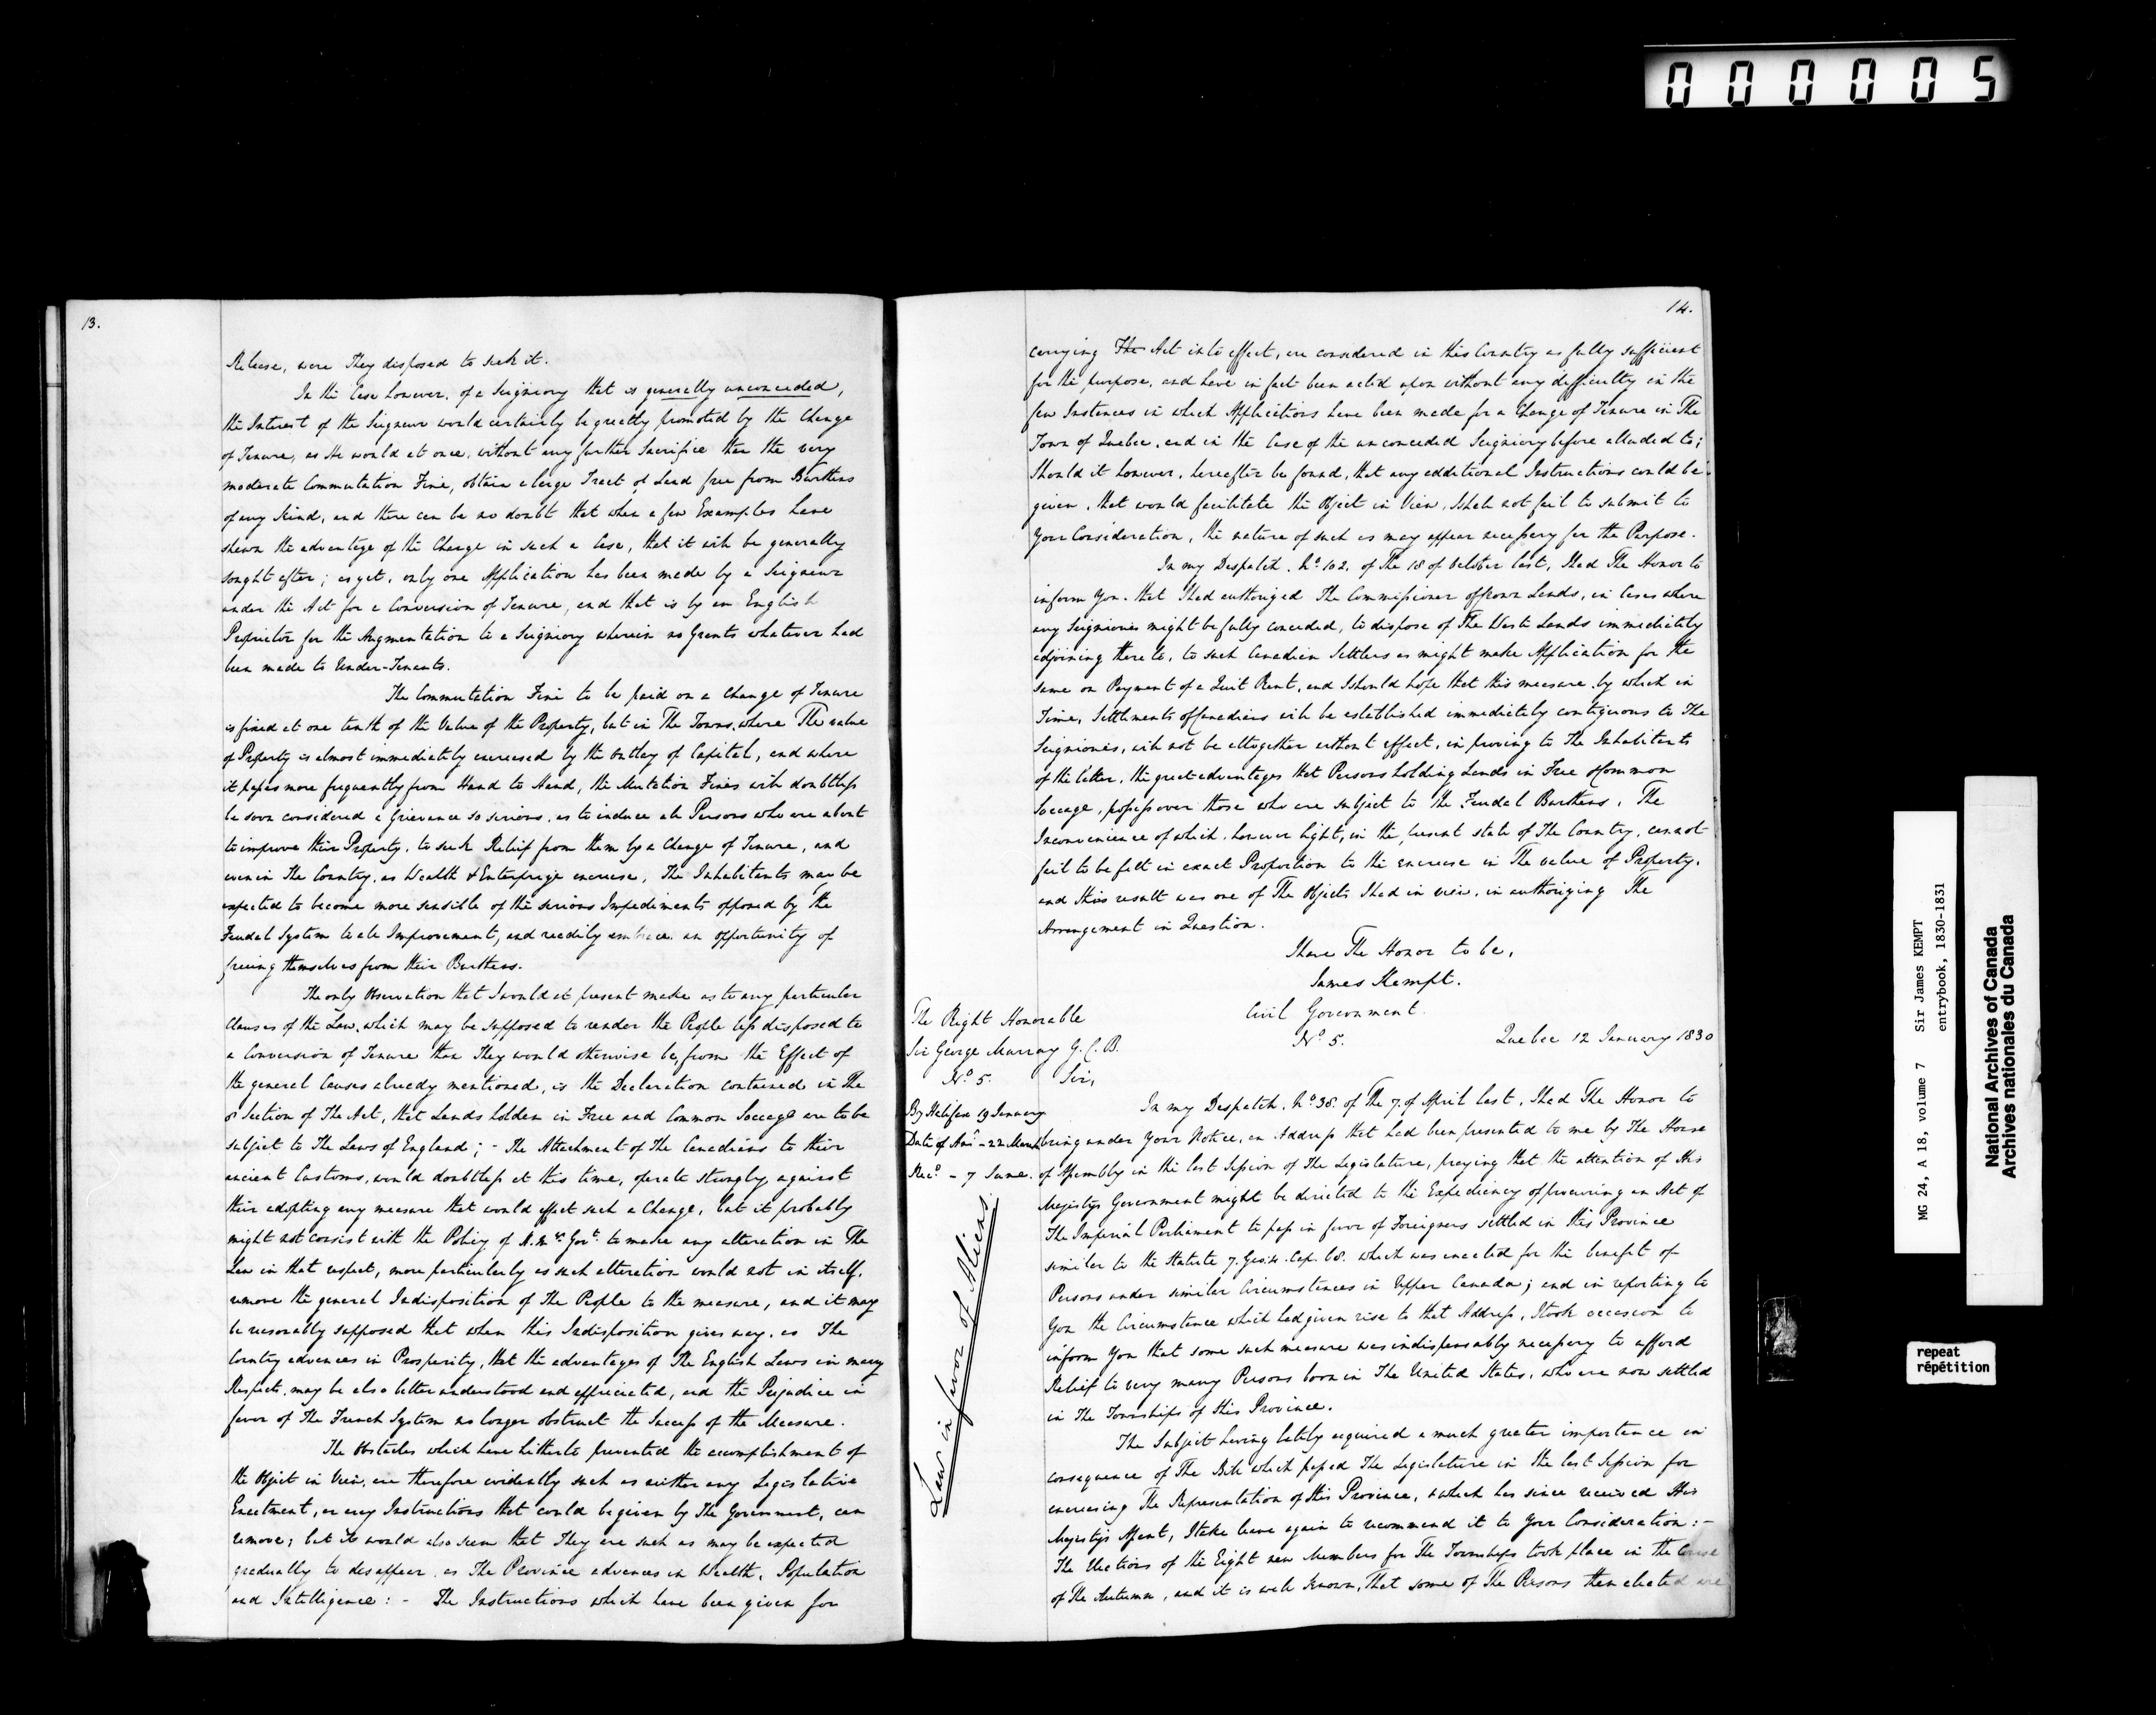 000005
13.
Release, were They disposed to seek it.
In the Case however, of a Seigniory that is generally unconceded,
the Interest of the Seigneur would certainly be greatly promoted by the Change
of Tenure, as He would at once, without any further Sacrifice than the very
moderate Commutation Fine, obtain a large Tract of Land free from Burthens
of any Kind, and there can be no doubt that when a few Examples have
shewn the advantage of the Change in such a Case, that it will be generally
sought after; as yet, only one Application has been made by a Seigneur
under the Act for a Conversion of Tenure, and that is by an English
Proprietor for the Augmentation to a Seigniory wherein no Grants whatever had
been made to Under-Tenants.
The Commutation Fine to be paid on a Change of Tenure
is fixed at one tenth of the Value of the Property, but in The Towns, where The value
of Property is almost immediately encreased by the outlay of Capital, and where
it passes more frequently from Hand to Hand, the Mutation Fines will doubtless
be soon considered a Grievance so serious, as to induce all Persons who are about
to improve their Property, to seek Relief from them by a Change of Tenure, and
even in The Country, as Wealth & Enterprize encrease, The Inhabitants may be
expected to become more sensible of the serious Impediments opposed by the
Feudal System to all Improvement, and readily embrace an opportunity of
freeing themselves from their Burthens.
The only Observation that I would at present make as to any particular
Clauses of the Law, which may be supposed to render the People less disposed to
a Conversion of Tenure than They would otherwise be, from the Effect of
the general Causes already mentioned, is the Declaration contained in The
8 Section of The Act, that Lands holden in Free and Common Soccage are to be
subject to The Laws of England; - The Attachment of The Canadians to their
ancient Customs, would doubtless at this time, operate strongly against
their adopting any measure that would effect such a Change, but it probably
might not consist with the Policy of H. M's. Govt. to make any alteration in The
Law in that respect, more particularly as such alteration would not in itself,
remove the general Indisposition of The People to the measure, and it may
be reasonably supposed that when this Indisposition gives way, as The
Country advances in Prosperity, that the advantages of The English Laws in many
Respects, may be also better understood and appreciated, and the Prejudice in
favor of The French System no longer obstruct the Success of the Measure.
The Obstacles which have hitherto prevented the accomplishment of
the Object in View, are therefore evidently such as neither any Legislative
Enactment, or any Instructions that could be given by The Government, can
remove; but it would also seem that They are such as may be expected
gradually to disappear, as The Province advances in Wealth, Population
and Intelligence: - The Instructions which have been given for
14.
carrying The Act into effect, are considered in this Country as fully sufficient
for the purpose, and have in fact been acted upon without any difficulty in the
few Instances in which Applications have been made for a Change of Tenure in The
Town of Quebec, and in the Case of the unconceded Seigniory before alluded to;
Should it however, hereafter be found, that any additional Instructions could be
given, that would facilitate the Object in View, I shall not fail to submit to
Your Consideration, the nature of such as may appear necessary for the Purpose.
In my Despatch, No. 102. of The 18 of October last, I had The Honor to
inform You, that I had authorized The Commissioner of Crown Lands, in Cases where
any Seigniories might be fully conceded, to dispose of The Waste Lands immediately
adjoining thereto, to such Canadian Settlers as might make Application for the
same on Payment of a Quit Rent, and I should hope that this measure, by which in
Time, Settlments of Canadians will be established immediately contiguous to The
Seigniories, will not be altogether without effect, in proving to The Inhabitants
of the latter, the great advantages that Persons holding Lands in Free & Common
Soccage, possess over those who are subject to the Feudal Burthens, The
Inconvenience of which, however light, in the present state of The Country, cannot
fail to be felt in exact Proportion to the encrease in The value of Property,
and this result was one of The Objects I had in view, in authorizing The
Arrangement in Question.
I have The Honor to be,
James Kempt.
Civil Government.
The Right Honorable
Sir George Murray G.C.B.
No. 5. Quebec 12 January 1830
No. 5.
Sir,
By Halifax 19 January
Date of Ansr - 22 March
Recd. - 7 June.
Law in favor of Aliens
In my Despatch, No. 38. of The 7. of April last, I had The Honor to
bring under Your Notice, an Address that had been presented to me by The House
of Assembly in the last Session of The Legislature, praying that the attention of His
Majestys Government might be directed to the Expediency of procuring an Act of
The Imperial Parliament to pass in favor of Foreigners settled in this Province
similar to the Statute 7. Geo: 4. Cap. 68. which was enacted for the benefit of
Persons under similar Circumstances in Upper Canada; and in reporting to
You the Circumstance which had given rise to that Address, I took occasion to
inform You that some such measure was indispensably necessary to afford
Relief to very many Persons born in The United States, who are now settled
in The Townships of this Province.
The Subject having lately acquired a much greater importance in
consequence of The Bill which passed The Legislature in the last Session for
encreasing The Representation of this Province, & which has since received His
Majestys Assent, I take leave again to recommend it to Your Consideration: -
The Elections of the Eight new Members for The Townships took place in the Course
of The Autumn, and it is well known, That some of The Persons then elected are
MG 24, A 18, volume 7 Sir James KEMPT
entrybook, 1830-1831
National Archives of Canada
Archives nationales du Canada
repeat
répétition